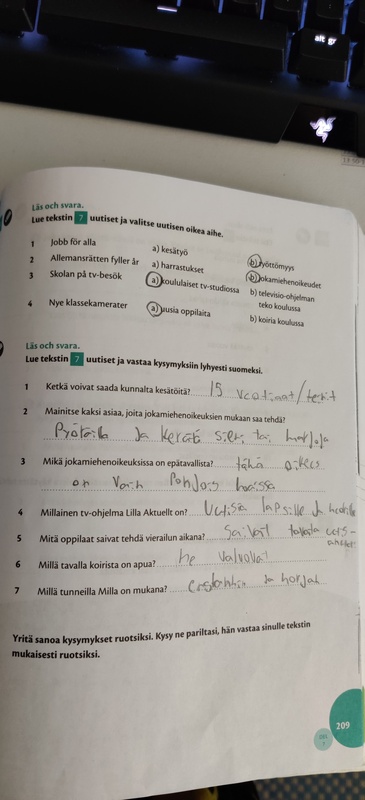 alt gr
Läs och svara.
Lue tekstin 7 uutiset ja valitse uutisen oikea aihe.
1 Jobb för alla a) kesätyö b) työttömyys
2 Allemansrätten fyller år a) harrastukset b) jokamiehenoikeudet
3 Skolan på tv-besök a) koululaiset tv-studiossa b) televisio-ohjelman
teko koulussa
4 Nye klasskamerater a) uusia oppilaita b) koiria koulussa
Läs och svara.
Lue tekstin 7 uutiset ja vastaa kysymyksiin lyhyesti suomeksi.
1 Ketkä voivat saada kunnalta kesätöitä? 15
2 Mainitse kaksi asiaa, joita jokamiehenoikeuksien mukaan saa tehdä?
Pyöräillä ja kerätä sieni tai marjoja
3 Mikä jokamiehenoikeuksissa on epätavallista? tähä oikeus
on vain Pohjois
4 Millainen tv-ohjelma Lilla Aktuellt on? Uutisia lapsille ja
5 Mitä oppilaat saivat tehdä vierailun aikana? saivat tavata uutis-
6 Millä tavalla koirista on apua? he valvovat
7 Millä tunneilla Milla on mukana? ja
Yritä sanoa kysymykset ruotsiksi. Kysy ne pariltasi, hän vastaa sinulle tekstin
mukaisesti ruotsiksi.
209